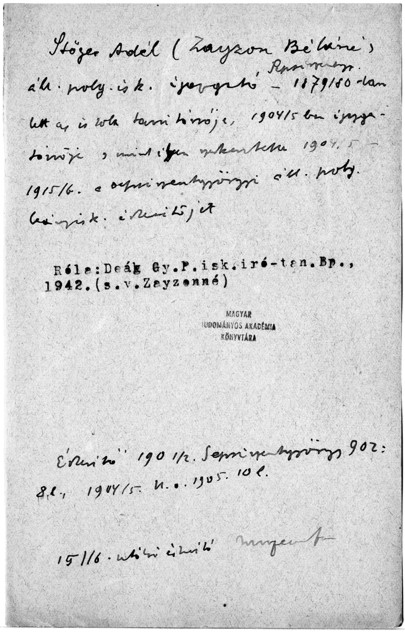 Stöger Adél (Zayzon Béláné)
áll. polg. isk. igazgató – 1879/80-ban
lett az iskola tanítónője, 1904/5 ben igazga-
tónője, mint ilyen 1904/5 –
1915/6. a sepsiszentgyörgyi áll. polg.
leányisk. értesítőjét
Róla:Deák Gy.P.isk.iró-tan.Bp.,
1942.(s.v.Zayzonné)
MAGYAR
TUDOMÁNYOS AKADÉMIA
KÖNYVTÁRA
Értesítő 1901/2. Sepsiszentgyörgy 902:
8.l., 1904/5. U.o. 1905. 10 l.
15/16. utolsó értesítő